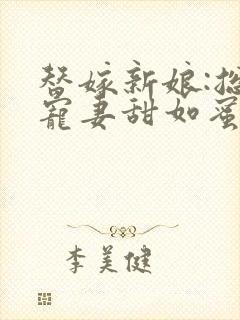 替嫁新娘:总
宠妻甜如蜜
李美健